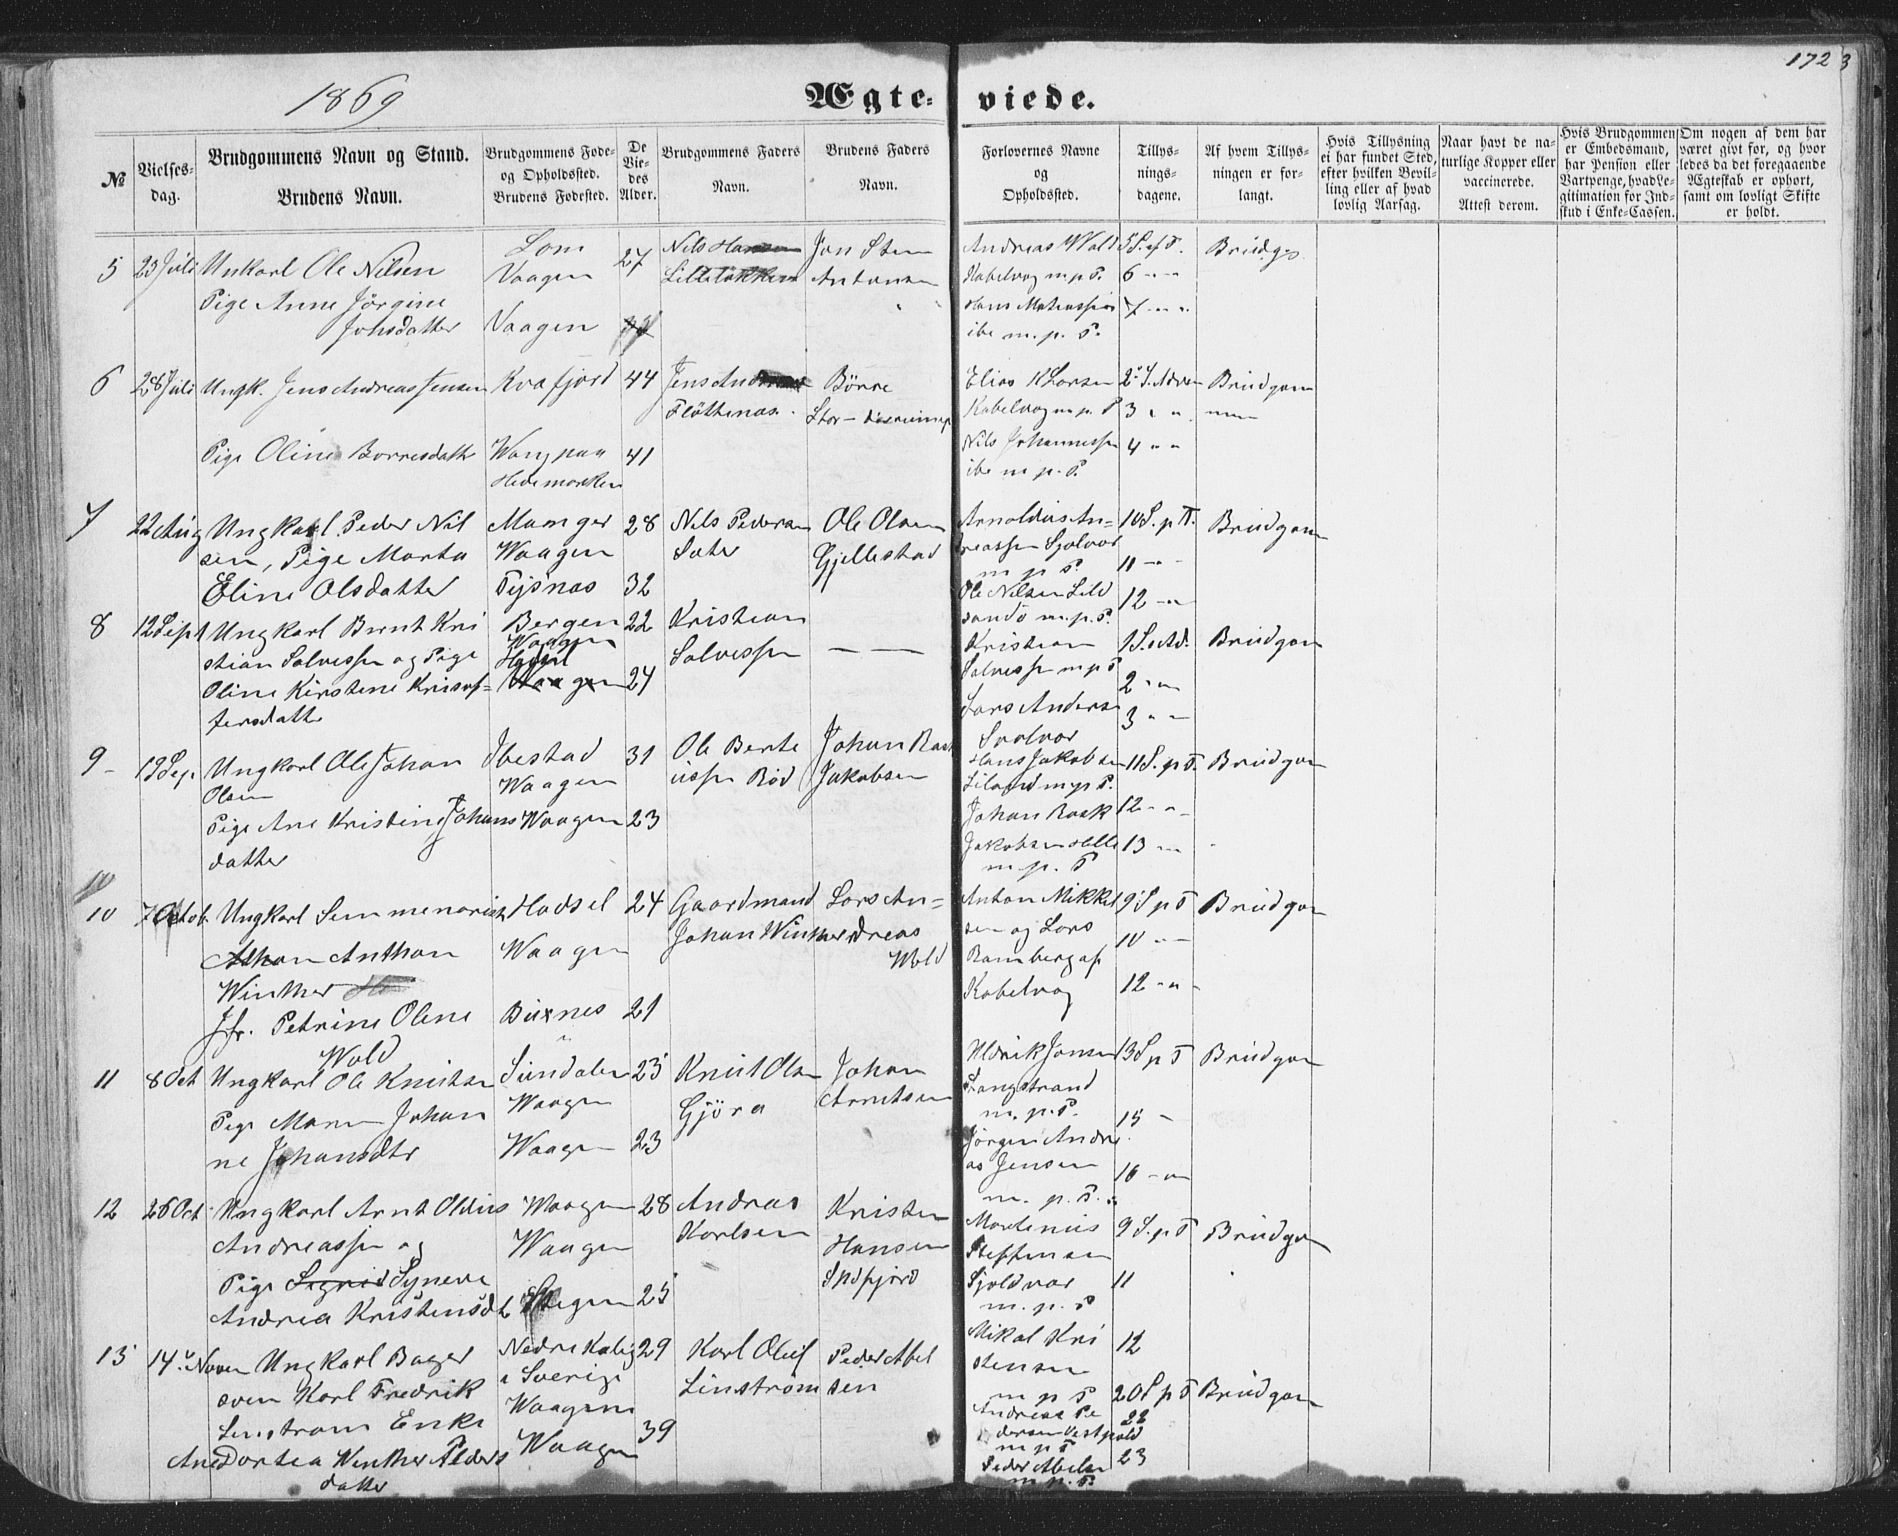 1869
Ægteviede.
172
3
№
Vielsesdag.
Brudgommens Navn og Stand.
Brudens Navn.
Brudgommens Fode- og Opholdsted.
Brudens Fodested.
De Viedes Alder.
Brudgommens Faders Navn.
Brudens Faders Navn.
Forlovernes Navne og Opholdsted.
Tillysningsdagene.
Af hvem Tillysningen er forlangt.
Hvis Tillysning ei har fundet Sted, efter hvilken Bevilling eller af hvad lovlig Aarsag.
Naar havt de naturlige Kopper eller vaccinerede. Attest derom.
Hvis Brudgommen er Embedsmand, har Pension eller Vartpenge, hvad Legitimation for Indskud i Enke-Cassen.
Om nogen af dem har været givt for, og hvorledes da det foregaaende Ægteskab er ophørt, samt om lovligt Skifte er holdt.
5 23 Juli Unkarl Ole Nilsen Lom Vaagen 27 Nils Hansen Lillelökken Jon Sten Antonsen
Pige Anne Jörgine Johsdatter Vaagen
Andreas Woll Kabelvog m.p.P. Hans Matiassen ibe m.p.P.
5 S. af T. 6 " " 7 " "
Brudgo
6 28 Juli Ungk. Jens Andreas Jensen Kvafjord 44 Jens Flöttenas Börre Stor-
Pige Oline Borresdatter Wang paa Hedemarken 41
Elias K Larsen Kabelvog m.p.P Nils Johannessen ibe m.p.P.
2. S. Adven 3 " " 4 " "
Brudgommen
7 22 Aug Ungkarl Peder Nilsen, Pige Marta Eline Olsdatter
Manger Waagen Tysnas
28 32
Nils Pedersen Sæter
Ole Olsen Gjellestad
Arnoldus Andreassen Sjolvor m p P. Ole Nilsen Lild sandö m.p.P.
10 S. p T. 11 " " 12 " "
Brudgom
8 12 Sept Ungkarl Bernt Kristian Salvessen og Pige Oline Kirstene Kristoffersdatter
Bergen Waagen Hadsel Waagen
22 24
Kristian Salvessen
— —
Kristian Salvessen m p P Lars Anderse Svolvor
1 S. Ad. 2 " " 3 " "
Brudgom
9 19 Sep. Ungkarl Ole Johan Olsen
Pige Ane Kristine Johansdatter
Ibestad Waagen Waagen
31 23
Ole Berteussen Röd
Johan Rask Jakobsen
Hans Jakobsen Liland m p P. Johan Rask Jakobsen Helle m.p.P
11 S. p T. 12 " " 13 " "
Brudgom
10
10 7 Octob. Ungkarl Semmenarist Anthon Winther
Jfr. Petrine Olene Wold
Hadsel Waagen Buxnes
24 21
Gaardmand Johan Winther
Lars Andreas Wold
Anton Mikkelsen og Lars Ramberg af Kabelvog
9 S p T 10 " " 12 " "
Brudgom
11 8 Oct Ungkarl Ole Knutsen
Pige Maren Johanne Johansdtr
Sundalen Waagen Waagen
25 23
Knut Olsen Gjöra
Johan Arntsen
Uldrik Jansen Langstrand m.p.P. Jörgen Andreas Jensen m.p.P.
13 S p T 15 " 16 " "
Brudgom
12 26 Oct Ungkarl Arnt Oldius Andreassen og
Pige Sigrid Syneve Andrea Kristensdt
Waagen Waagen Stegen
28 25
Andreas Karlsen
Kristen Hansen
Martenius Steffensen Sjoldvar m.p.P Mikal Kristensen m p P
9 S. p T 11 12
Brudgom
13 14. Noven Ungkarl Bagersven Karl Fredrik Linstrom Enke
Ane Dortea Winther Pedersdatter
Nedre Kalig i Sverige Waagen Waagen
29 39
Karl Oluf Linström
Peder Abelsen
Andreas Pedersen Vestpold m p P Peder Abelsen m.p.P.
20 S p T 22 23
Brudgom